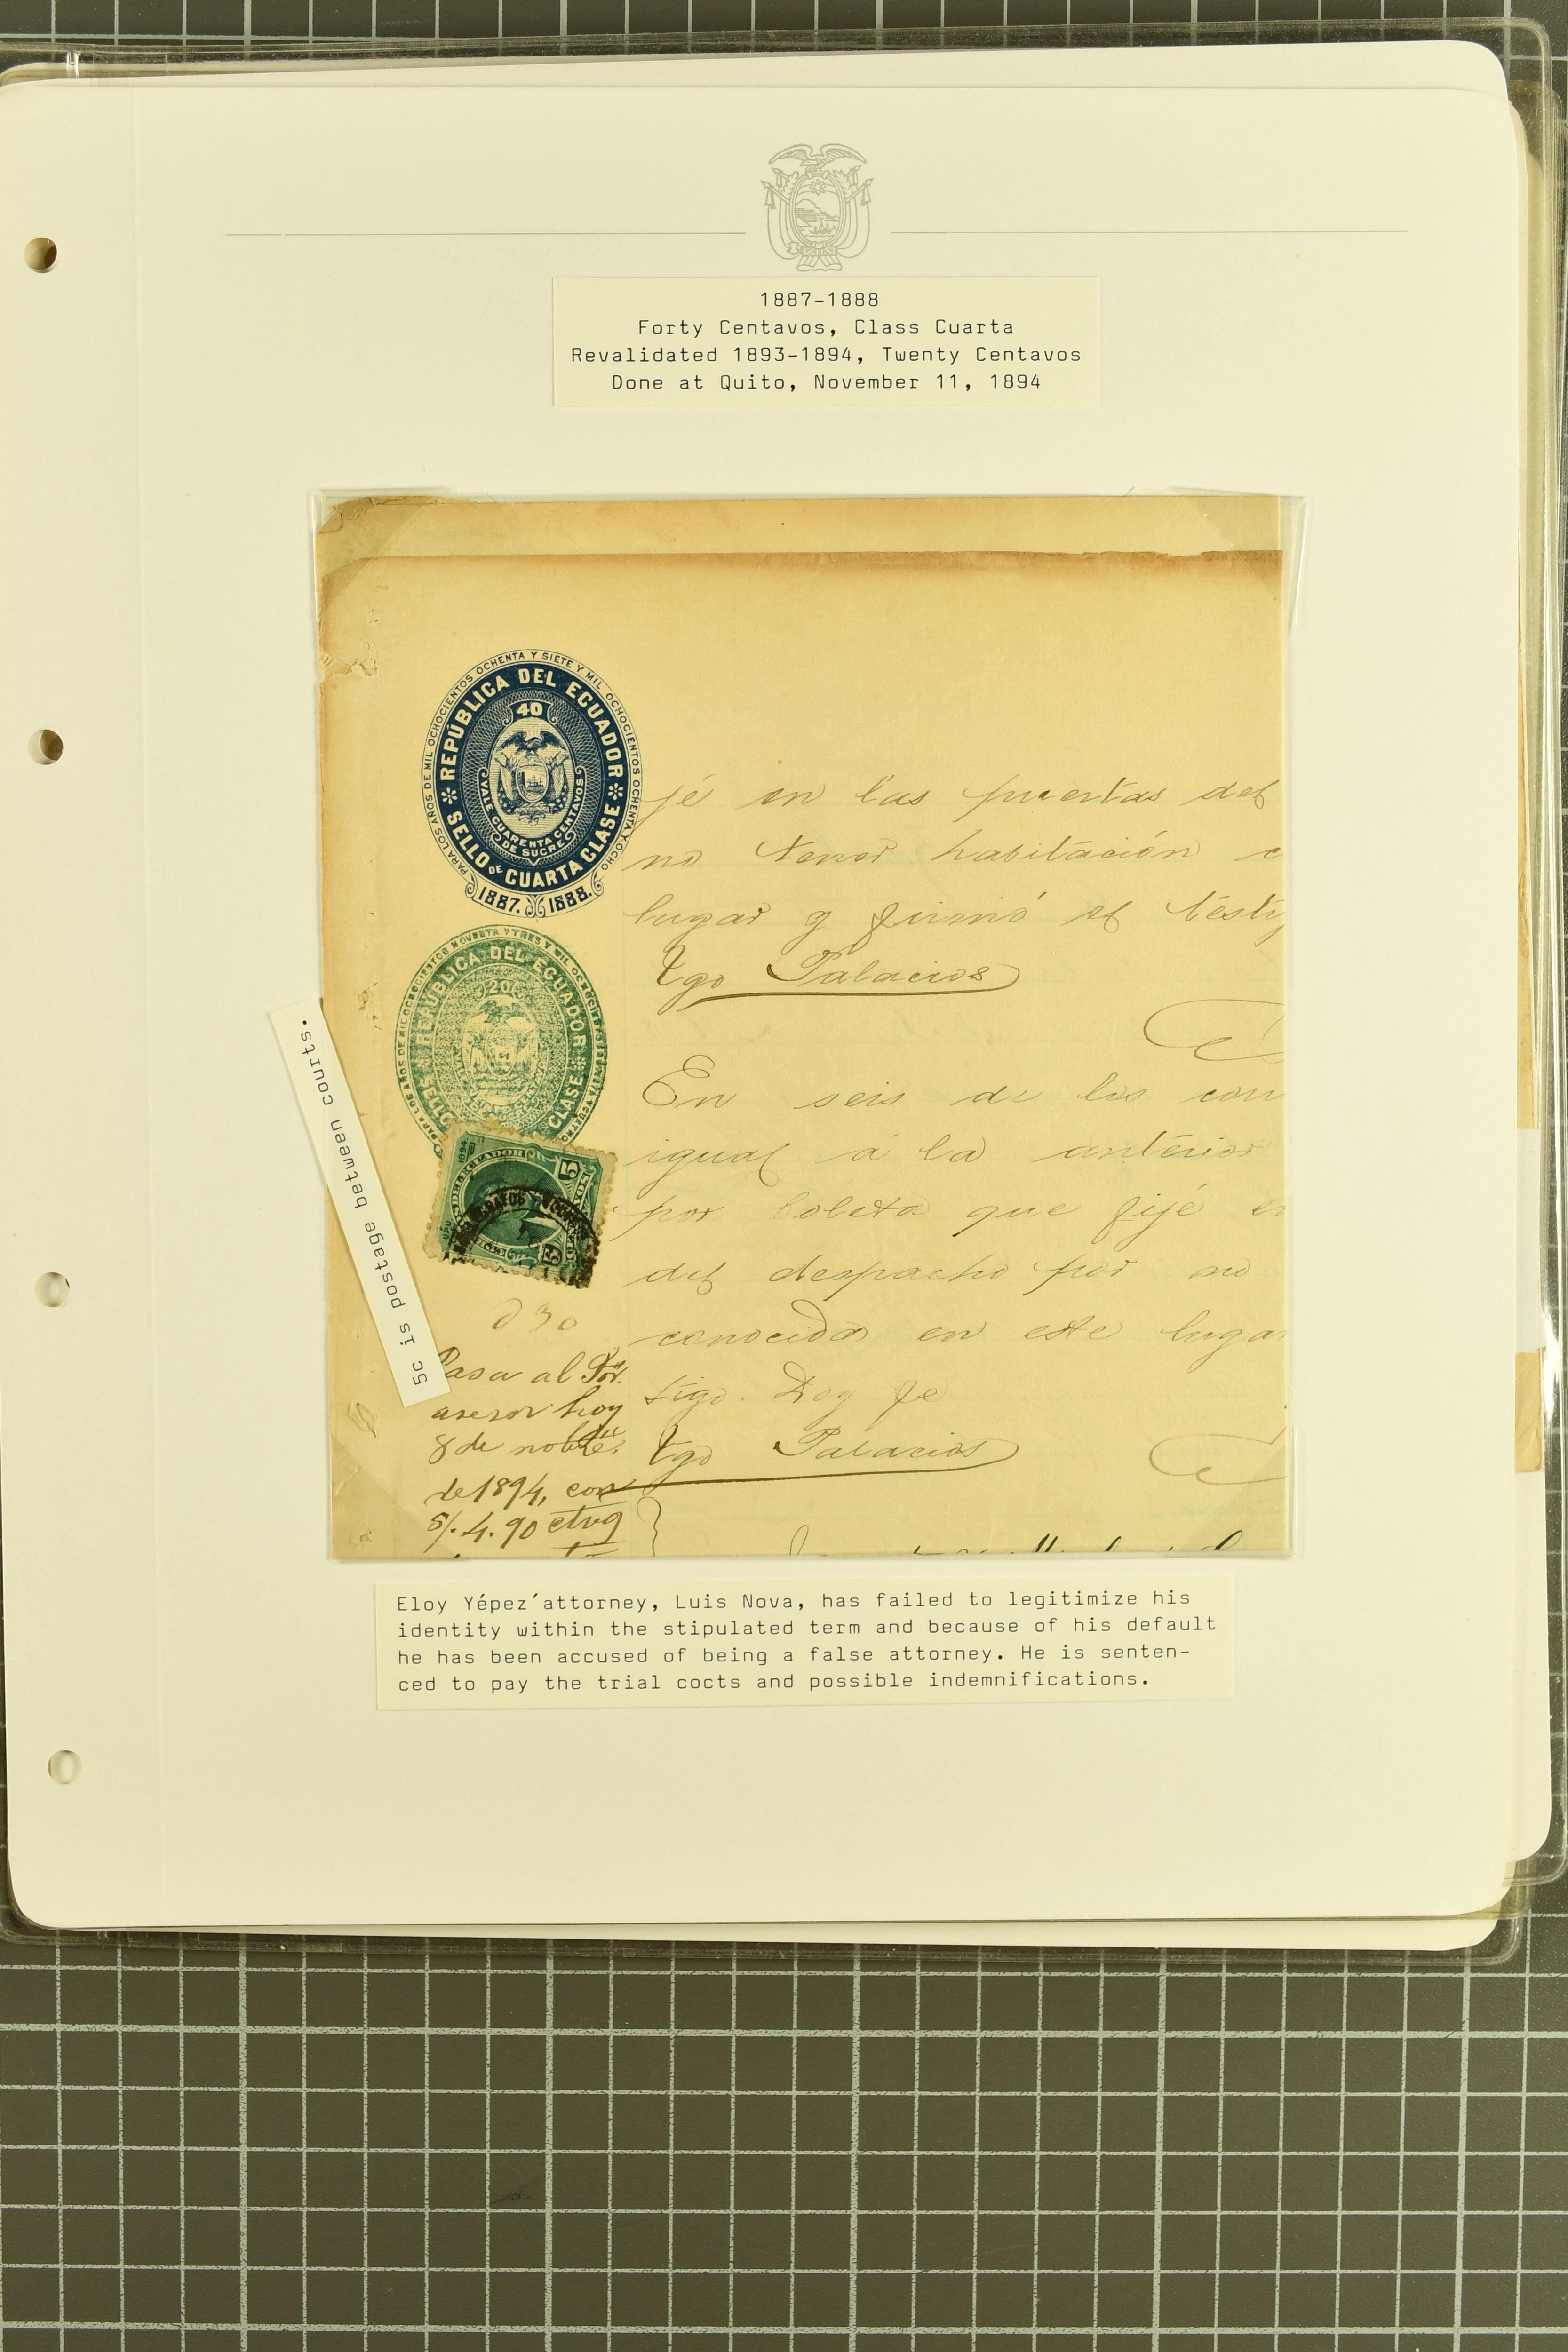 1887-1888
Forty Centavos, Class Cuarta
Revalidated 1893-1894, Twenty Centavos
Done at Quito, November 11, 1894
PARA LOS AÑOS DE MIL OCHOCIENTOS OCHENTA Y SIETE Y MIL OCHOCIENTOS OCHENTA Y OCHO
REPÚBLICA DEL ECUADOR
40
VALE CUARENTA CENTAVOS
DE SUCRE
SELLO DE CUARTA CLASE
1887. 1888.
jé en las puertas del
no tener habitación c
lugar y firmó el testi
Tgo Palacios
REPUBLICA DEL ECUADOR
20
CLASE
5c is postage between courts.
En seis de los corr
igual á la anterior
por boleta que fijé en
del despacho por no
conocida en este luga
tigo. Doy fe
Tgo Palacios
1894
5
5
030
Pasa al
asesor hoy
8 de
de 1894, con
S/. 4. 90 ctvs
Eloy Yépez´attorney, Luis Nova, has failed to legitimize his
identity within the stipulated term and because of his default
he has been accused of being a false attorney. He is senten-
ced to pay the trial cocts and possible indemnifications.